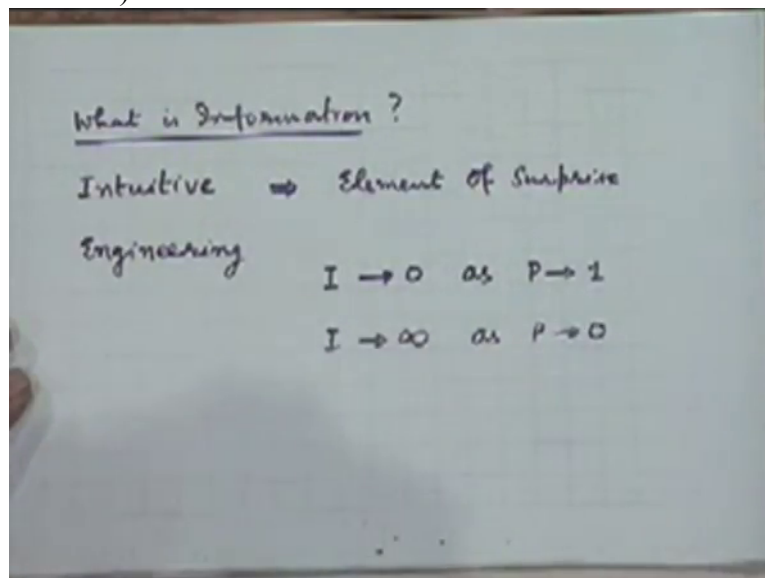 What is Information ?
Intuitive ⇒ Element of Surprise
Engineering
I → 0 as P → 1
I → ∞ as P → 0